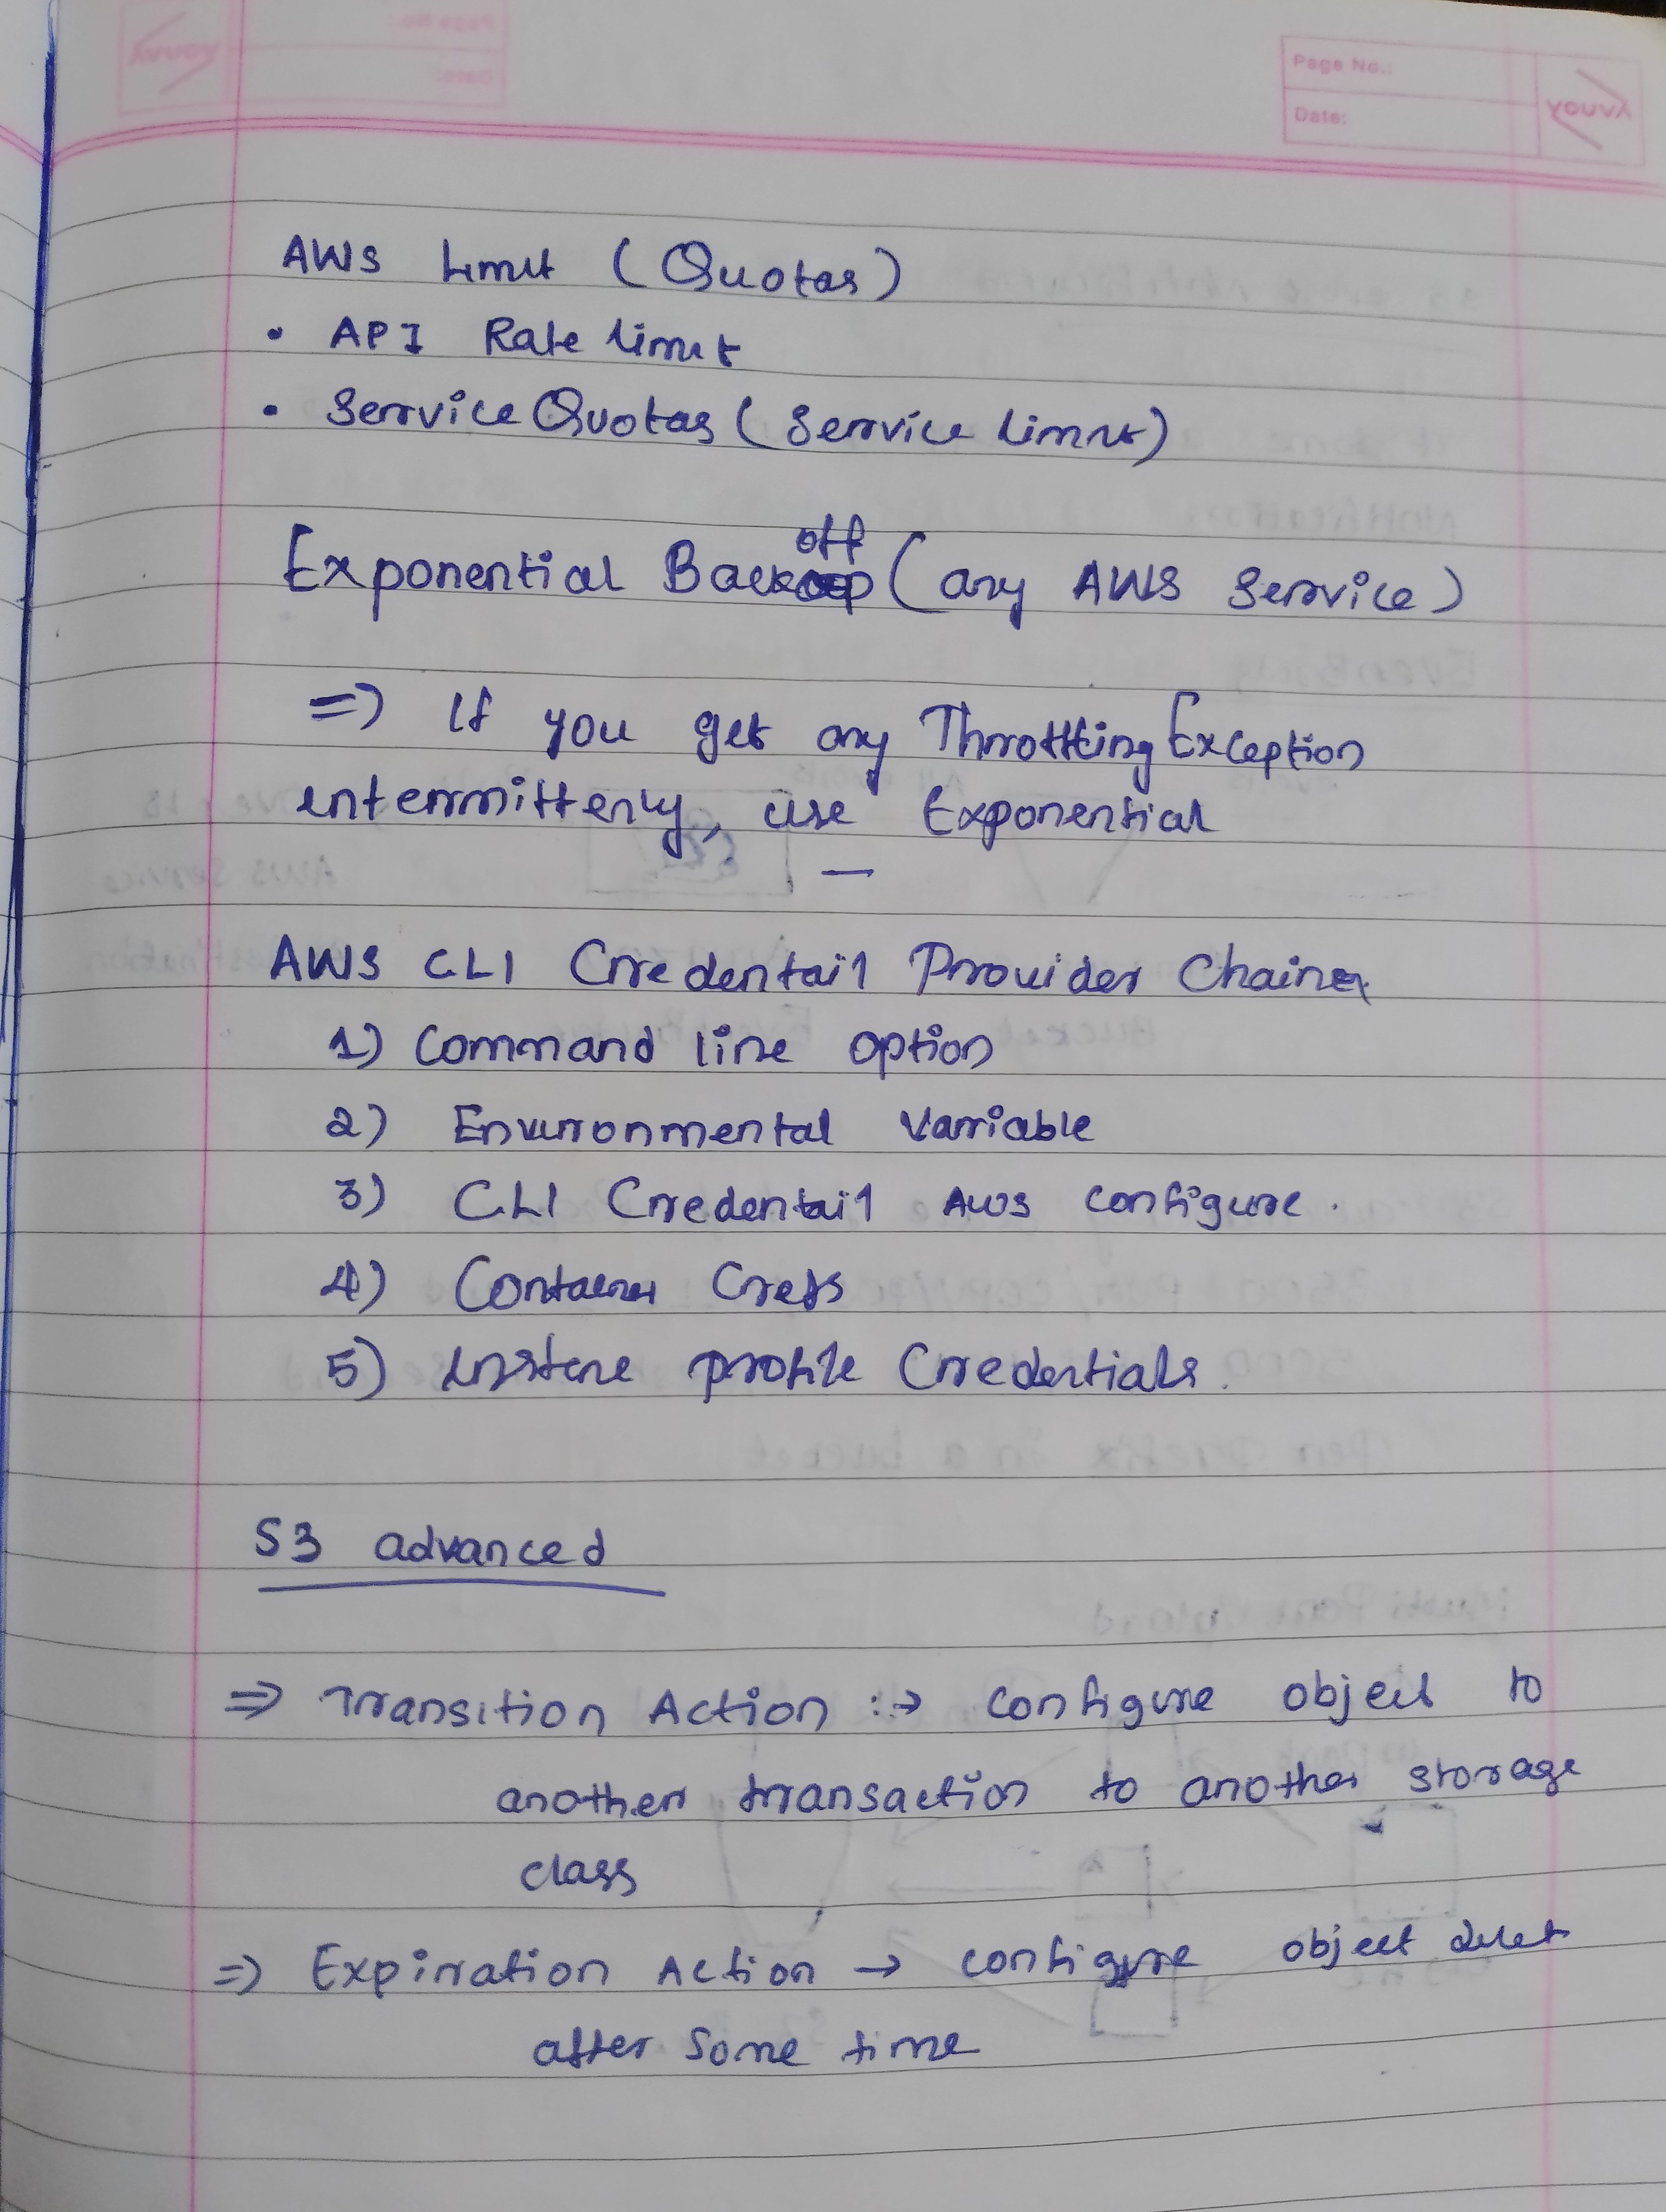 Page No.:
Date:
YOUVA
AWS Limit (Quotas)
• API Rate limit
• Service Quotas (Service Limit)
Exponential Back off (any AWS Service)
=> If you get any Throttling Exception
intermittenly, use Exponential
—
AWS CLI Credentail Provider Chain
1) Command line option
2) Environmental Variable
3) CLI Credentail Aws configure.
4) Container Creds
5) Instane profile Credentials.
S3 advanced
=> Transition Action :→ configure object to
another transaction to another storage
class
=> Expiration Action → configure object delet
after some time